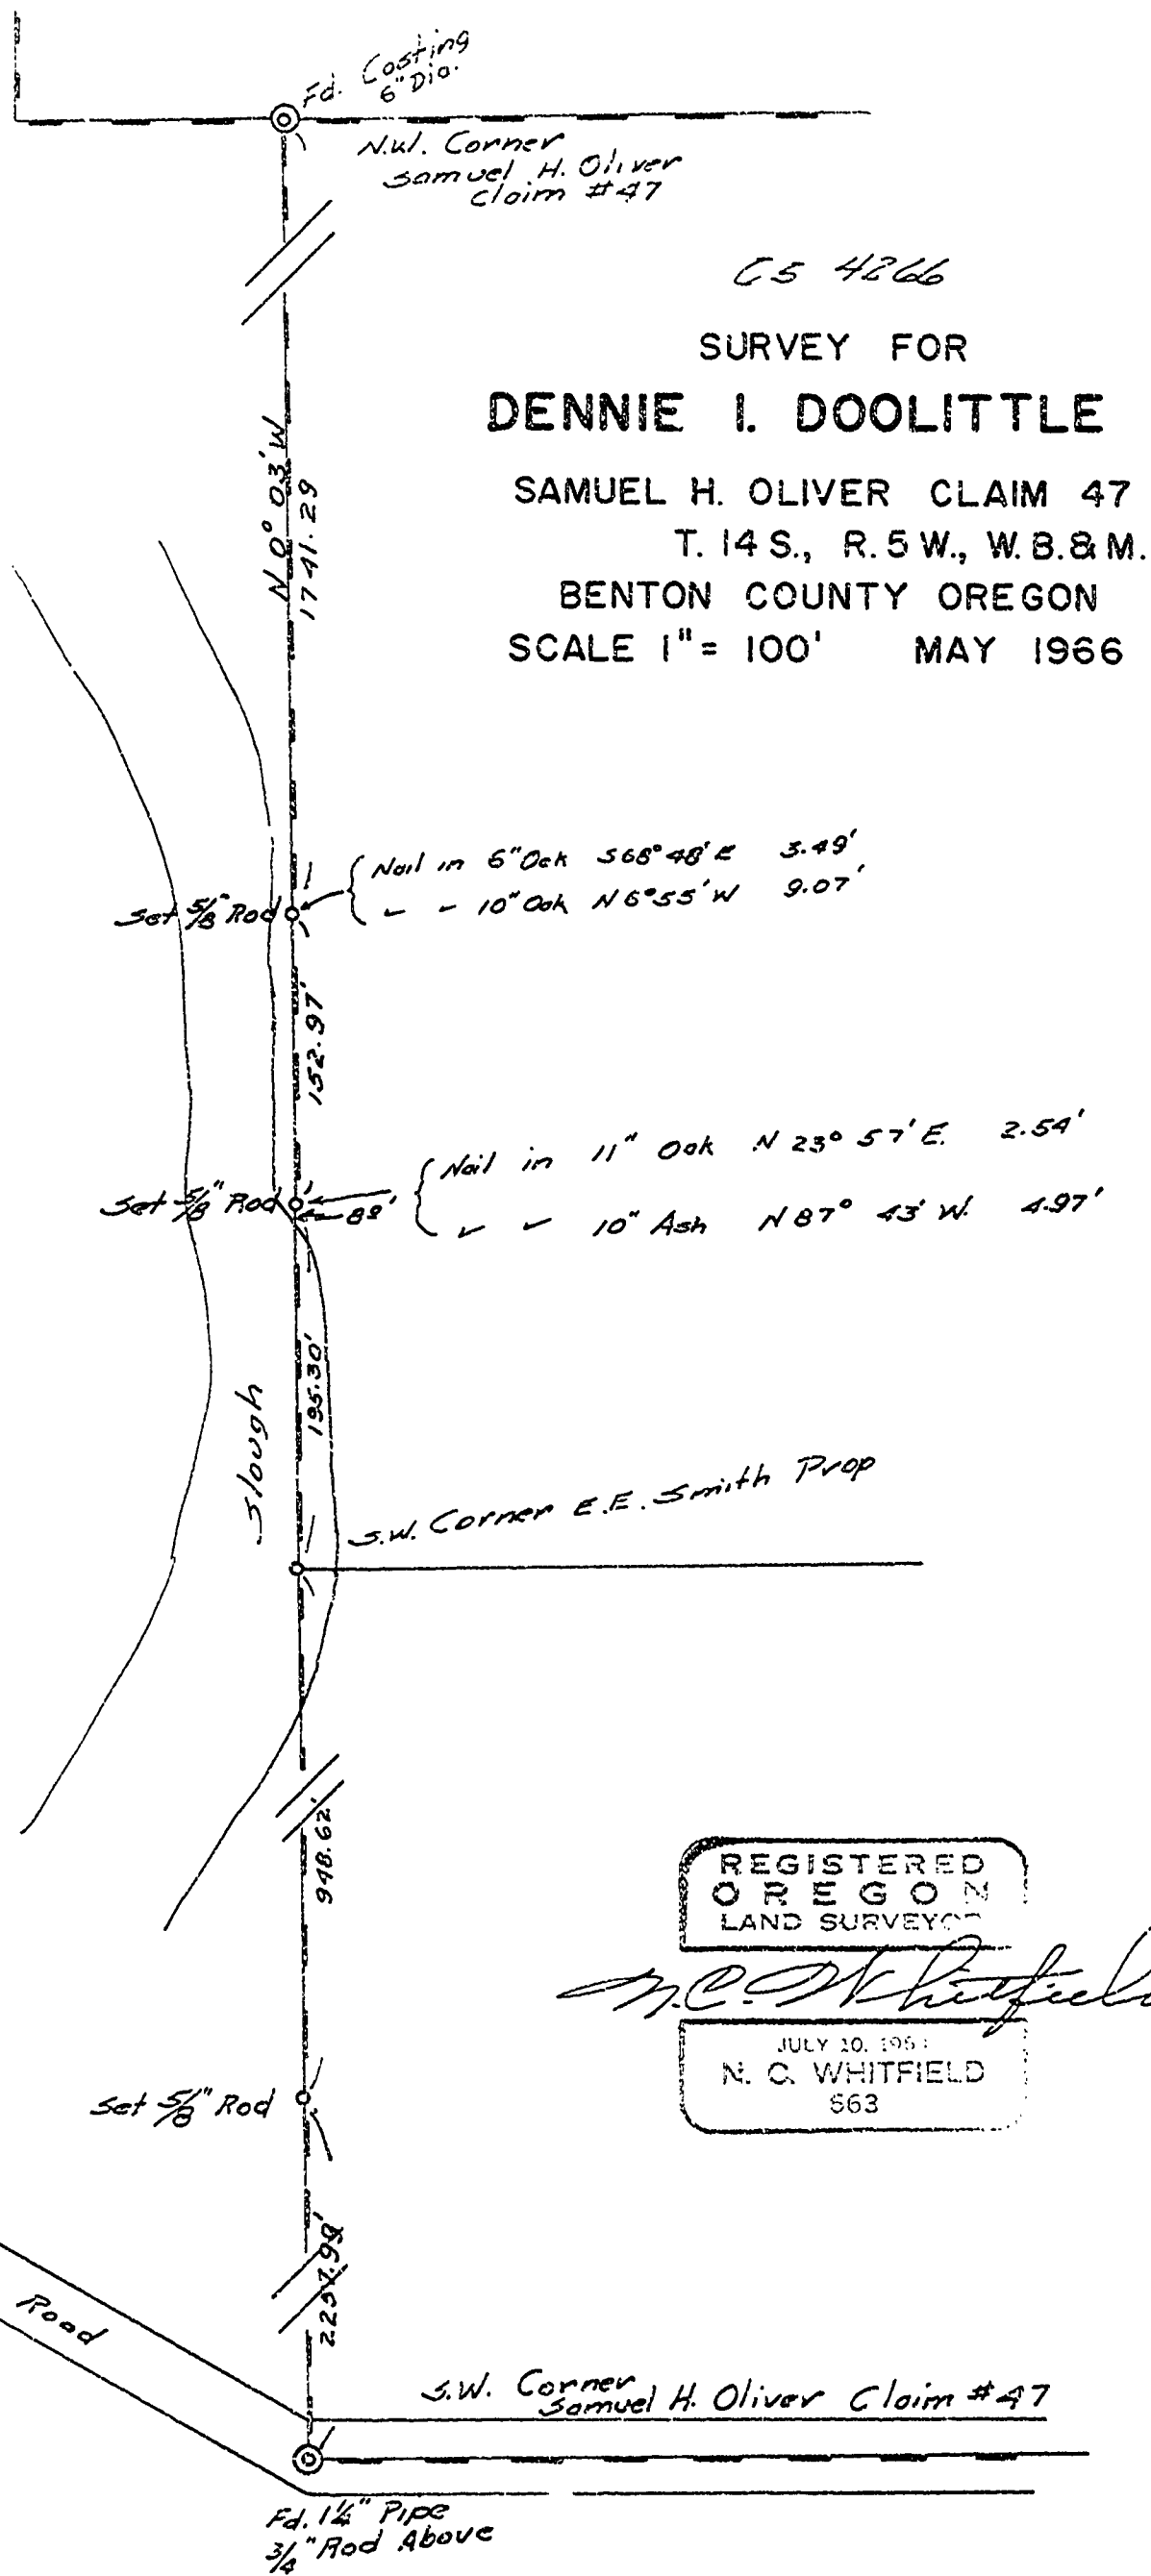 Fd. Casting
6" Dia.
N.W. Corner
Samuel H. Oliver
Claim #47
CS 4266
SURVEY FOR
DENNIE I. DOOLITTLE
SAMUEL H. OLIVER CLAIM 47
T. 14 S., R. 5 W., W. B. & M.
BENTON COUNTY OREGON
SCALE 1" = 100' MAY 1966
N 0° 03' W
1741.29
Nail in 6" Oak S68°48'E 3.49'
10" Oak N6°55'W 9.07'
Set 5/8" Rod
152.97'
Nail in 11" Oak N 23° 57' E. 2.54'
10" Ash N 87° 43' W. 4.97'
Set 5/8" Rod
195.30'
Slough
S.W. Corner E.E. Smith Prop
948.62'
REGISTERED
OREGON
LAND SURVEYOR
N.C. Whitfield
JULY 10,
N. C. WHITFIELD
663
Set 5/8" Rod
2257.99'
Road
S.W. Corner
Samuel H. Oliver Claim #47
Fd. 1 1/4" Pipe
3/4" Rod Above